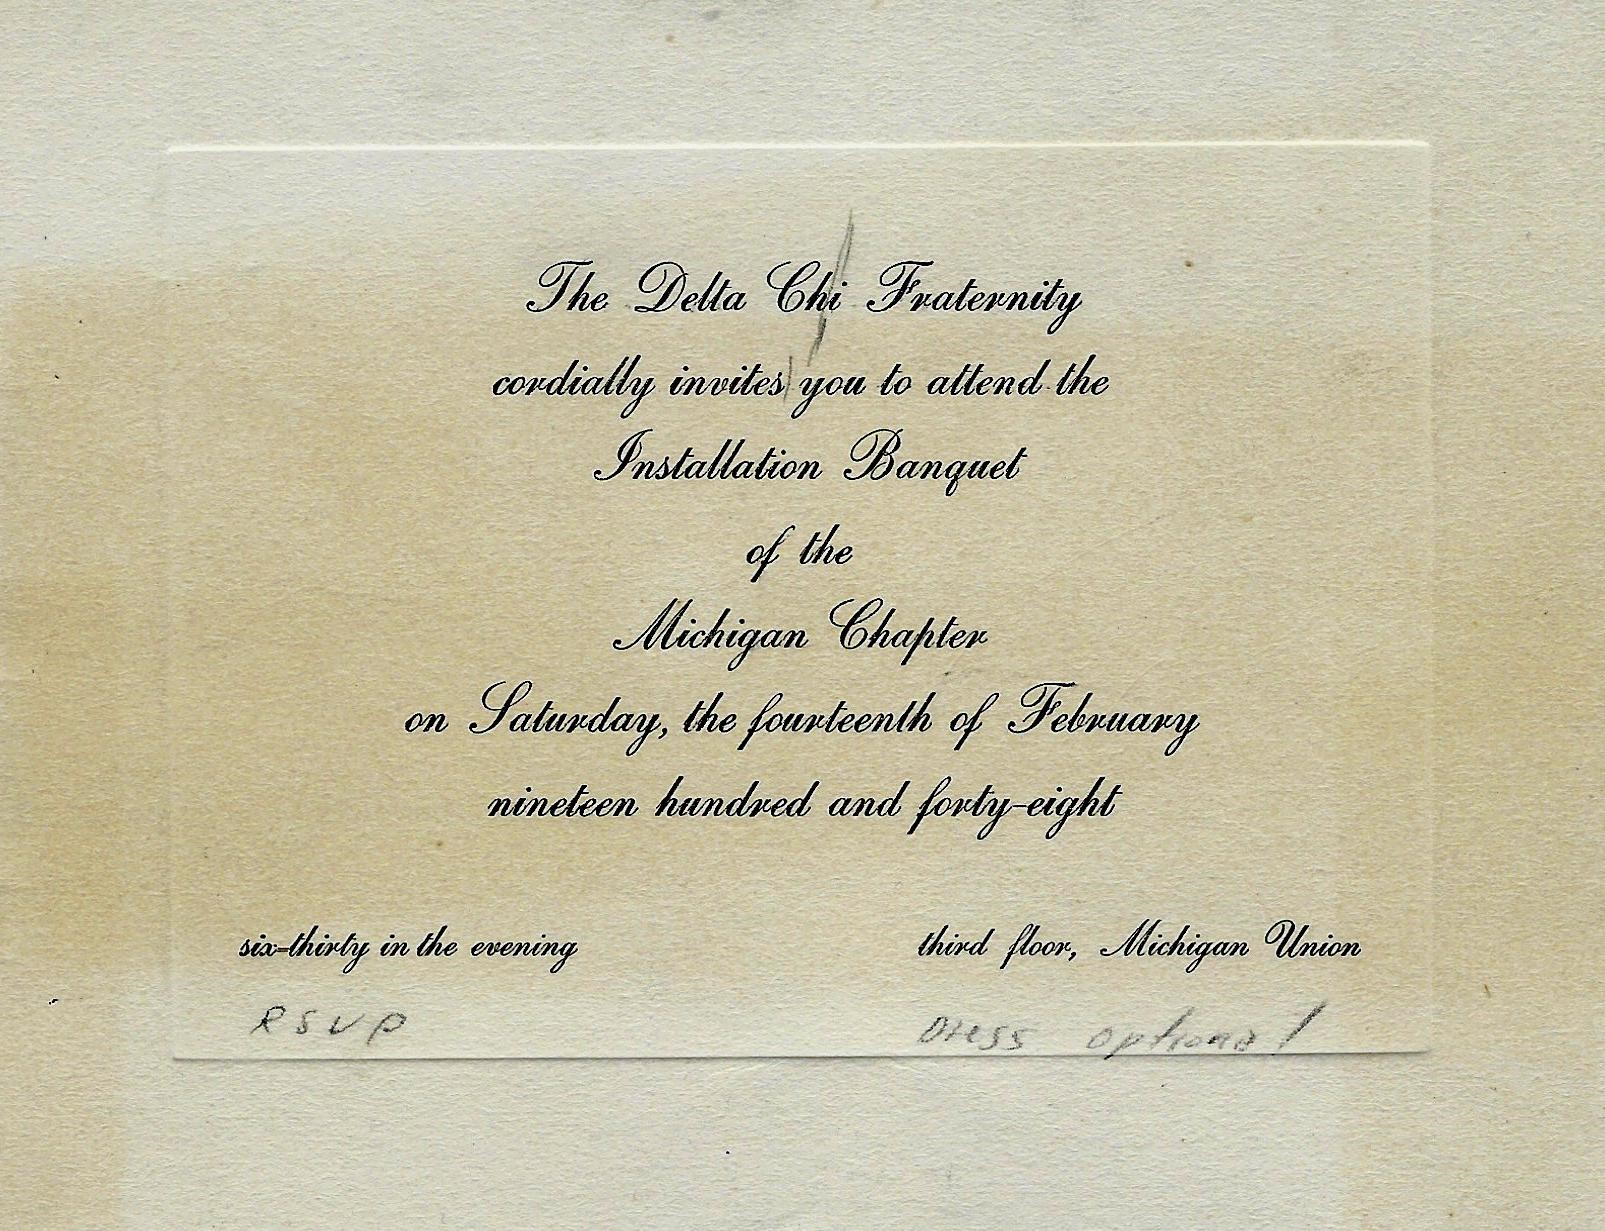 The Delta Chi Fraternity
cordially invites you to attend the
Installation Banquet
of the
Michigan Chapter
on Saturday, the fourteenth of February
nineteen hundred and forty-eight
six-thirty in the evening
third floor, Michigan Union
RSVP
Dress optional